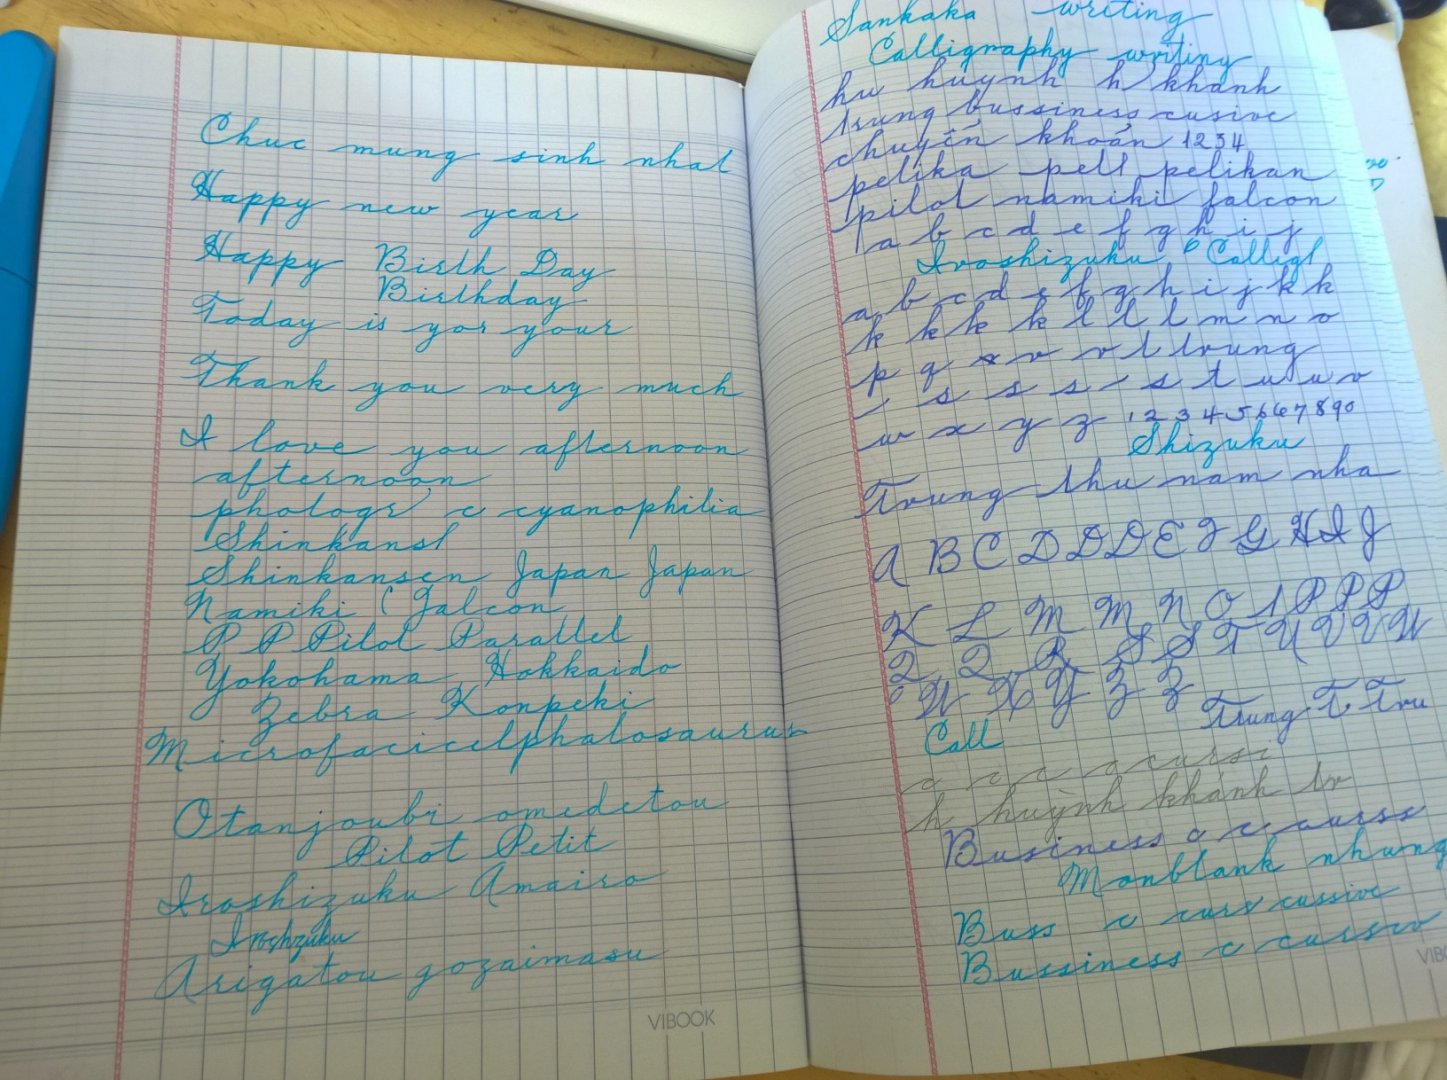 Chuc mung sinh nhat
Happy new year
Happy Birth Day
Birthday
Today is yor your
Thank you very much
I love you afternoon
afternoon
photogr c cyanophilia
Shinkans
Shinkansen Japan Japan
Namiki ( Falcon
P P Pilot Parallel
Yokohama Hokkaido
Zebra Konpeki
Microfacicelphalosaurus
Otanjoubi omedetou
Pilot Petit
Iroshizuku Amairo
Iroshzuku
Arigatou gozaimasu
VIBOOK
Sankaka writing
Calligraphy writing
hu huynh h khanh
trung bussiness cusive
chuyển khoản 1234
pelika pell pelikan
pilot namiki falcon
a b c d e f g h i j
Iroshizuku Calligr
a b c d e f g h i j k k
k k k k l l l m n o
p q r v r t trung
s s s s t u u v
w x y z 1 2 3 4 5 6 6 7 8 9 0
Shizuku
Trung thu nam nha
A B C D D D E F G H I J
K L M M N O 1 P P P
Q Q R S S T U V V W
W X Y Z Z
Trung T Tru
Call
c c c c cursi
h huỳnh khánh tr
Business c c curss
Monblank nhung
Buss c curs cussive
Bussiness c cursiv
VIBO